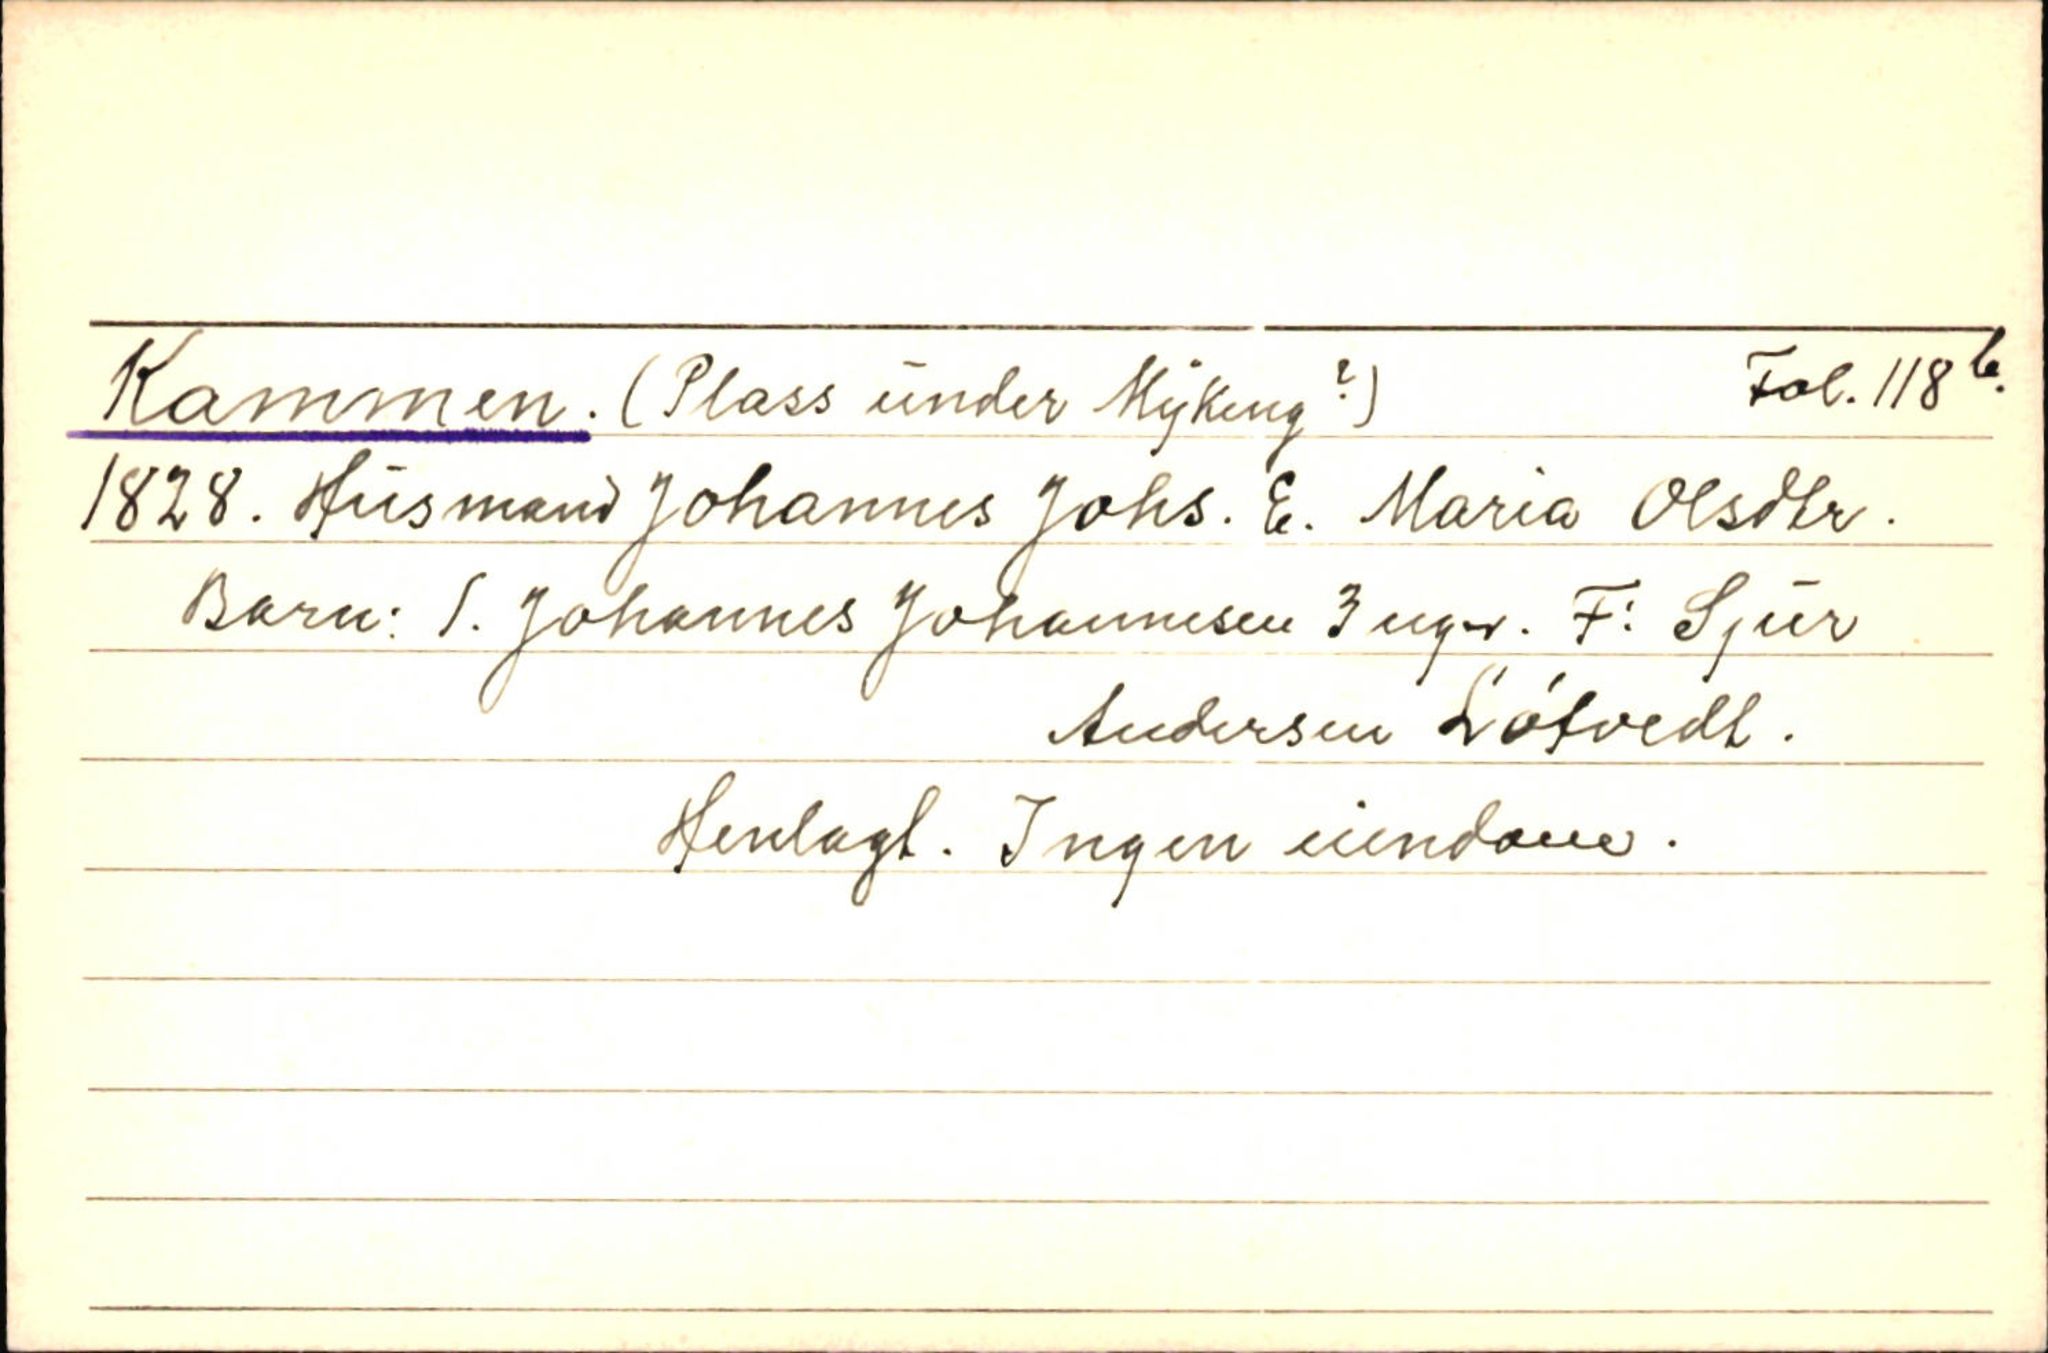 Kammen. (Plass under Myking?) Fol. 118 b.
1828. Husmand Johannes Johs. E. Maria Olsdtr.
Barn: 1. Johannes Johannesen 3 uger. F: Sjur
Andersen Løtvedt.
Henlagt. Ingen eiendom.